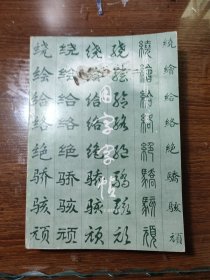 绕绘给络绝骄骇顽
绕绘给络绝骄骇顽
绕绘给络绝骄骇顽
绕绘给络绝骄骇顽
用字字帖
繞繪給絡絕驕駭頑
繞繪給絡絕驕駭頑